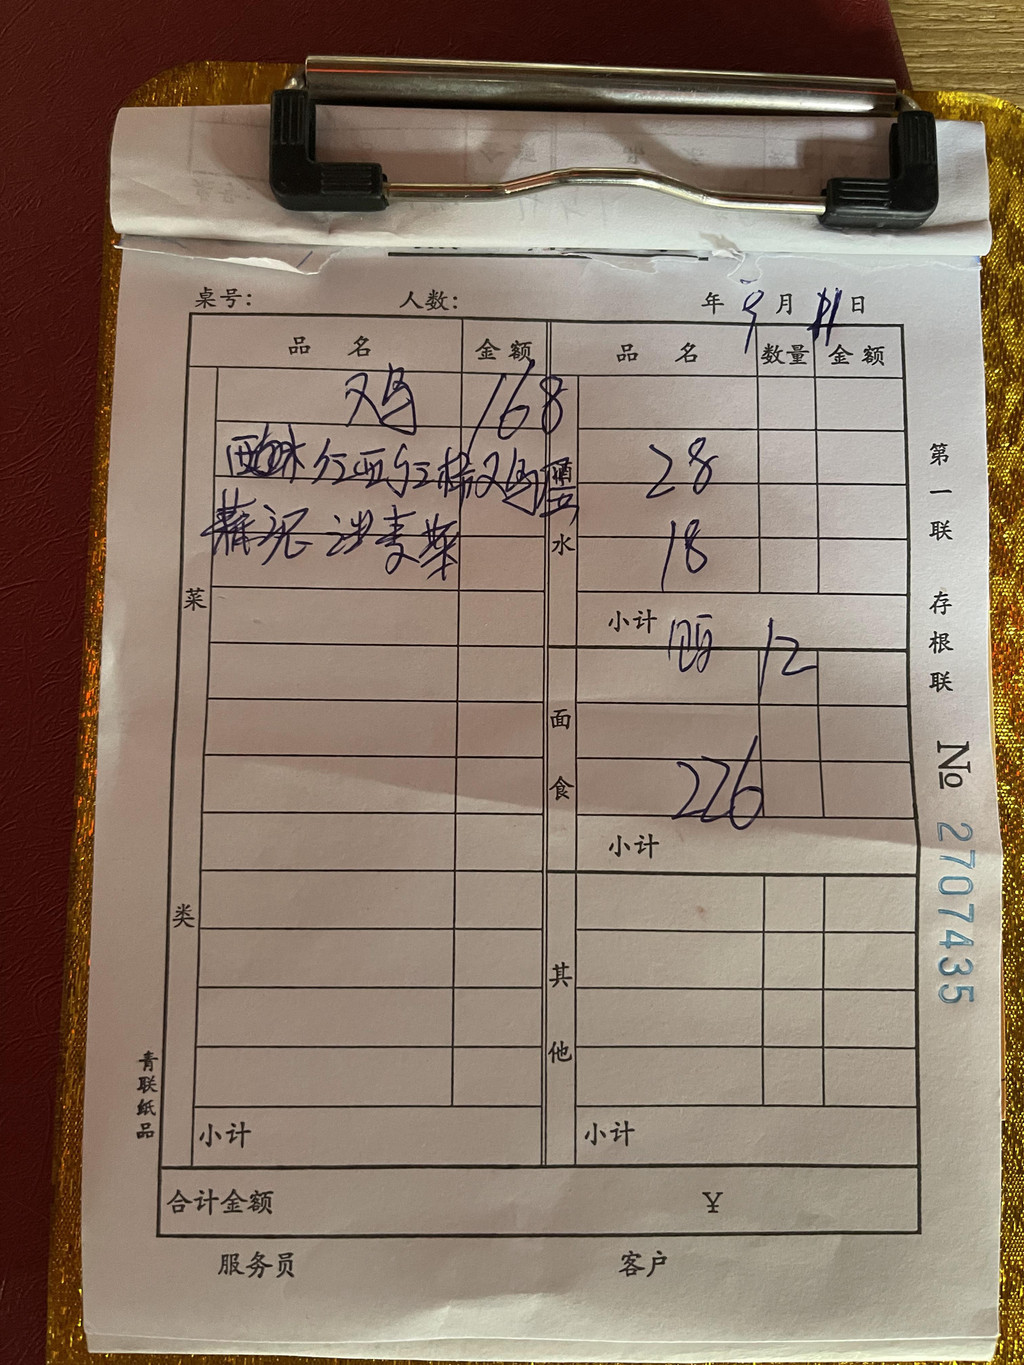 桌号： 人数： 年 9月 11日
品名 金额 品名 数量 金额
鸡 168
西红柿鸡蛋 28
蒜泥油麦菜 18
酒水
小计
12
226
小计
菜类
面食
其他
小计 小计
合计金额 ¥
服务员 客户
第一联 存根联
№ 2707435
青联纸品